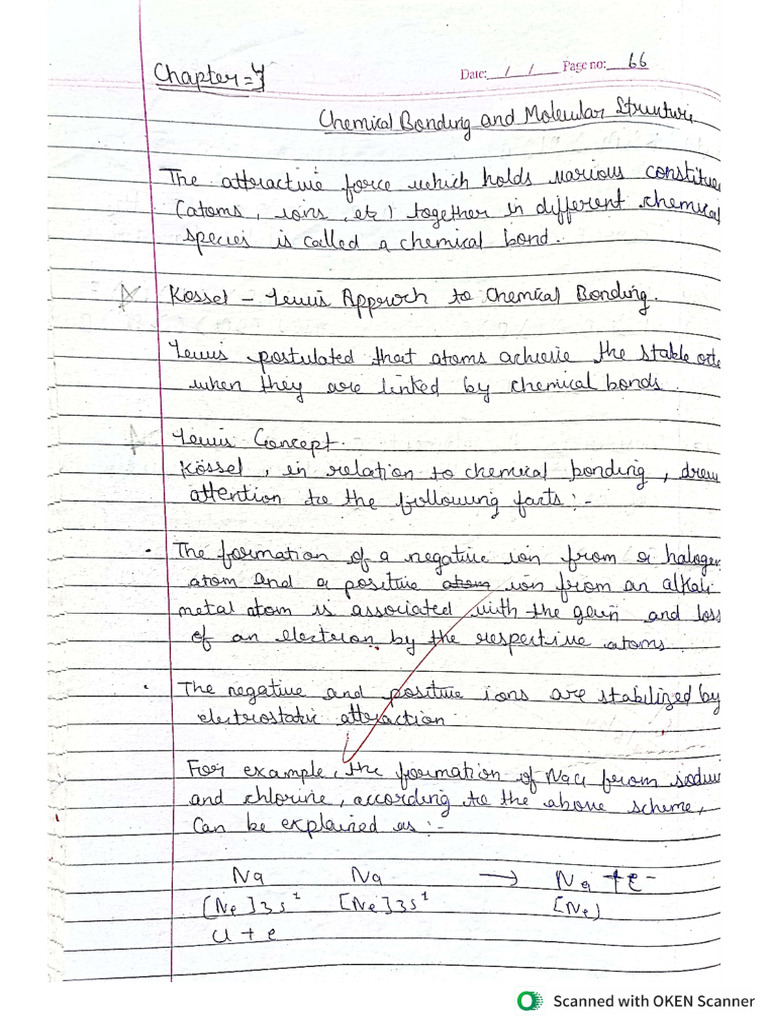 Chapter = 4
Date: / / Page no: 66
Chemical Bonding and Molecular Structure
The attractive force which holds various constitue
(atoms, ions, etc) together in different chemical
species is called a chemical bond.
Kossel - Lewis Approch to Chemical Bonding.
Lewis postulated that atoms achieve the stable octe
when they are linked by chemical bonds.
Lewis Concept.
Kössel, in relation to chemical bonding, drew
attention to the following facts :-
• The formation of a negative ion from a halogen
atom and a positive atom ion from an alkali
metal atom is associated with the gain and loss
of an electron by the respective atoms.
• The negative and positive ions are stabilized by
electrostatic attraction
For example, the formation of NaCl from sodium
and chlorine, according to the above scheme,
Can be explained as :-
Na Na → Na + e-
[Ne]3s¹ [Ne]3s¹ [Ne]
Cl + e
Scanned with OKEN Scanner